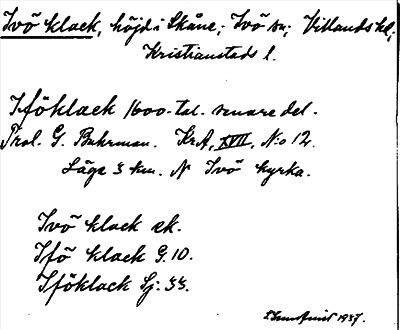 Ivö klack, höjd i Skåne; Ivö sn; Villands hd;
Kristianstads l.
Iföklack 1600-tal. senare del.
Prol. G. Buhrman. KrA, XVII, No 12.
Läge 3 km. N Ivö kyrka.
Ivö klack ek.
Ifö klack G. 10.
Iföklack Sj. 33.
1937.